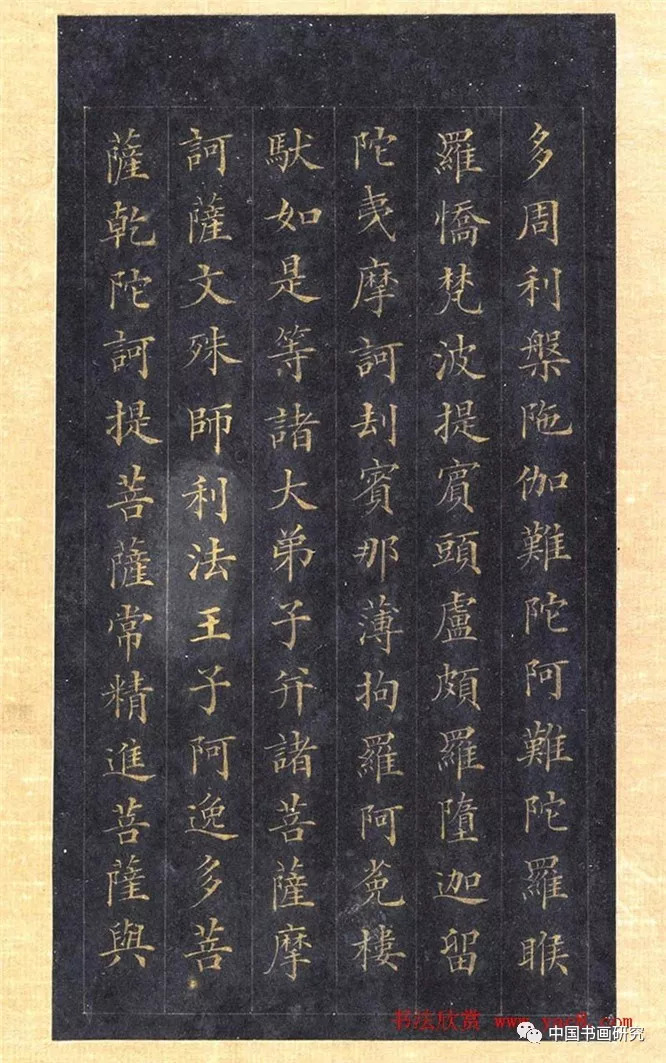 多周利槃陁伽難陀阿難陀羅睺
羅憍梵波提賓頭盧頗羅墮迦留
陀夷摩訶刦賓那薄拘羅阿㝹樓
馱如是等諸大弟子并諸菩薩摩
訶薩文殊師利法王子阿逸多菩
薩乾陀訶提菩薩常精進菩薩與
书法欣赏
中国书画研究